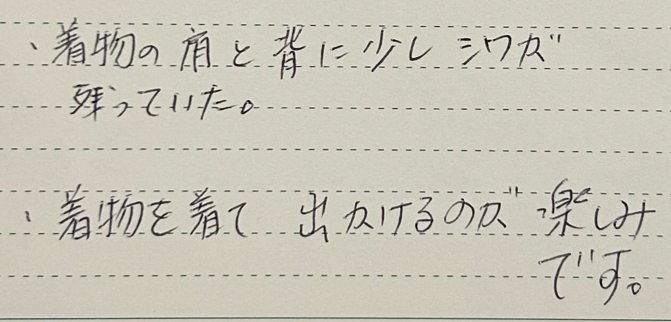 ・着物の肩と背に少しシワが
残っていた。
・着物を着て 出かけるのが 楽しみ
です。